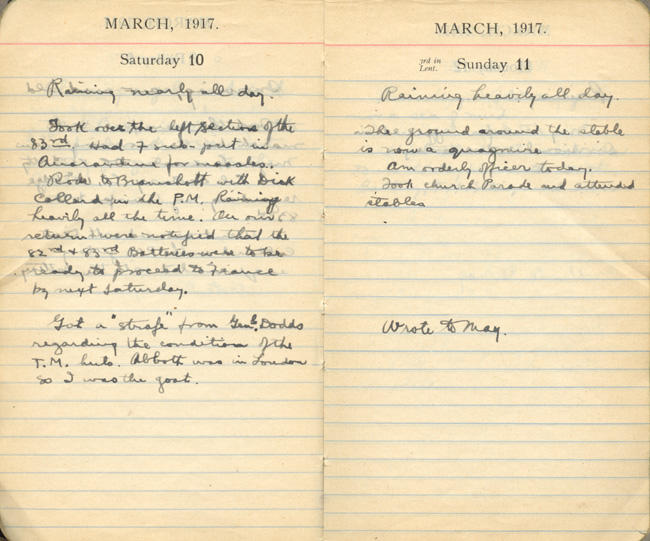 MARCH, 1917.
Saturday 10
Raining nearly all day.
Took over the left sections of the
83rd. Had 7 subs put in
Quarantine for measles.
Rode to Bramshott with Dick
Collard in the P.M. Raining
heavily all the time. On our
return were notified that the
82nd & 83rd Batteries were to be
ready to proceed to France
by next Saturday.
Got a "strafe" from Genl. Dodds
regarding the condition of the
T.M. huts. Abbott was in London
so I was the goat.
MARCH, 1917.
3rd in Lent. Sunday 11
Raining heavily all day.
The ground around the stable
is now a quagmire.
Am orderly officer today.
Took church Parade and attended
stables
Wrote to May.